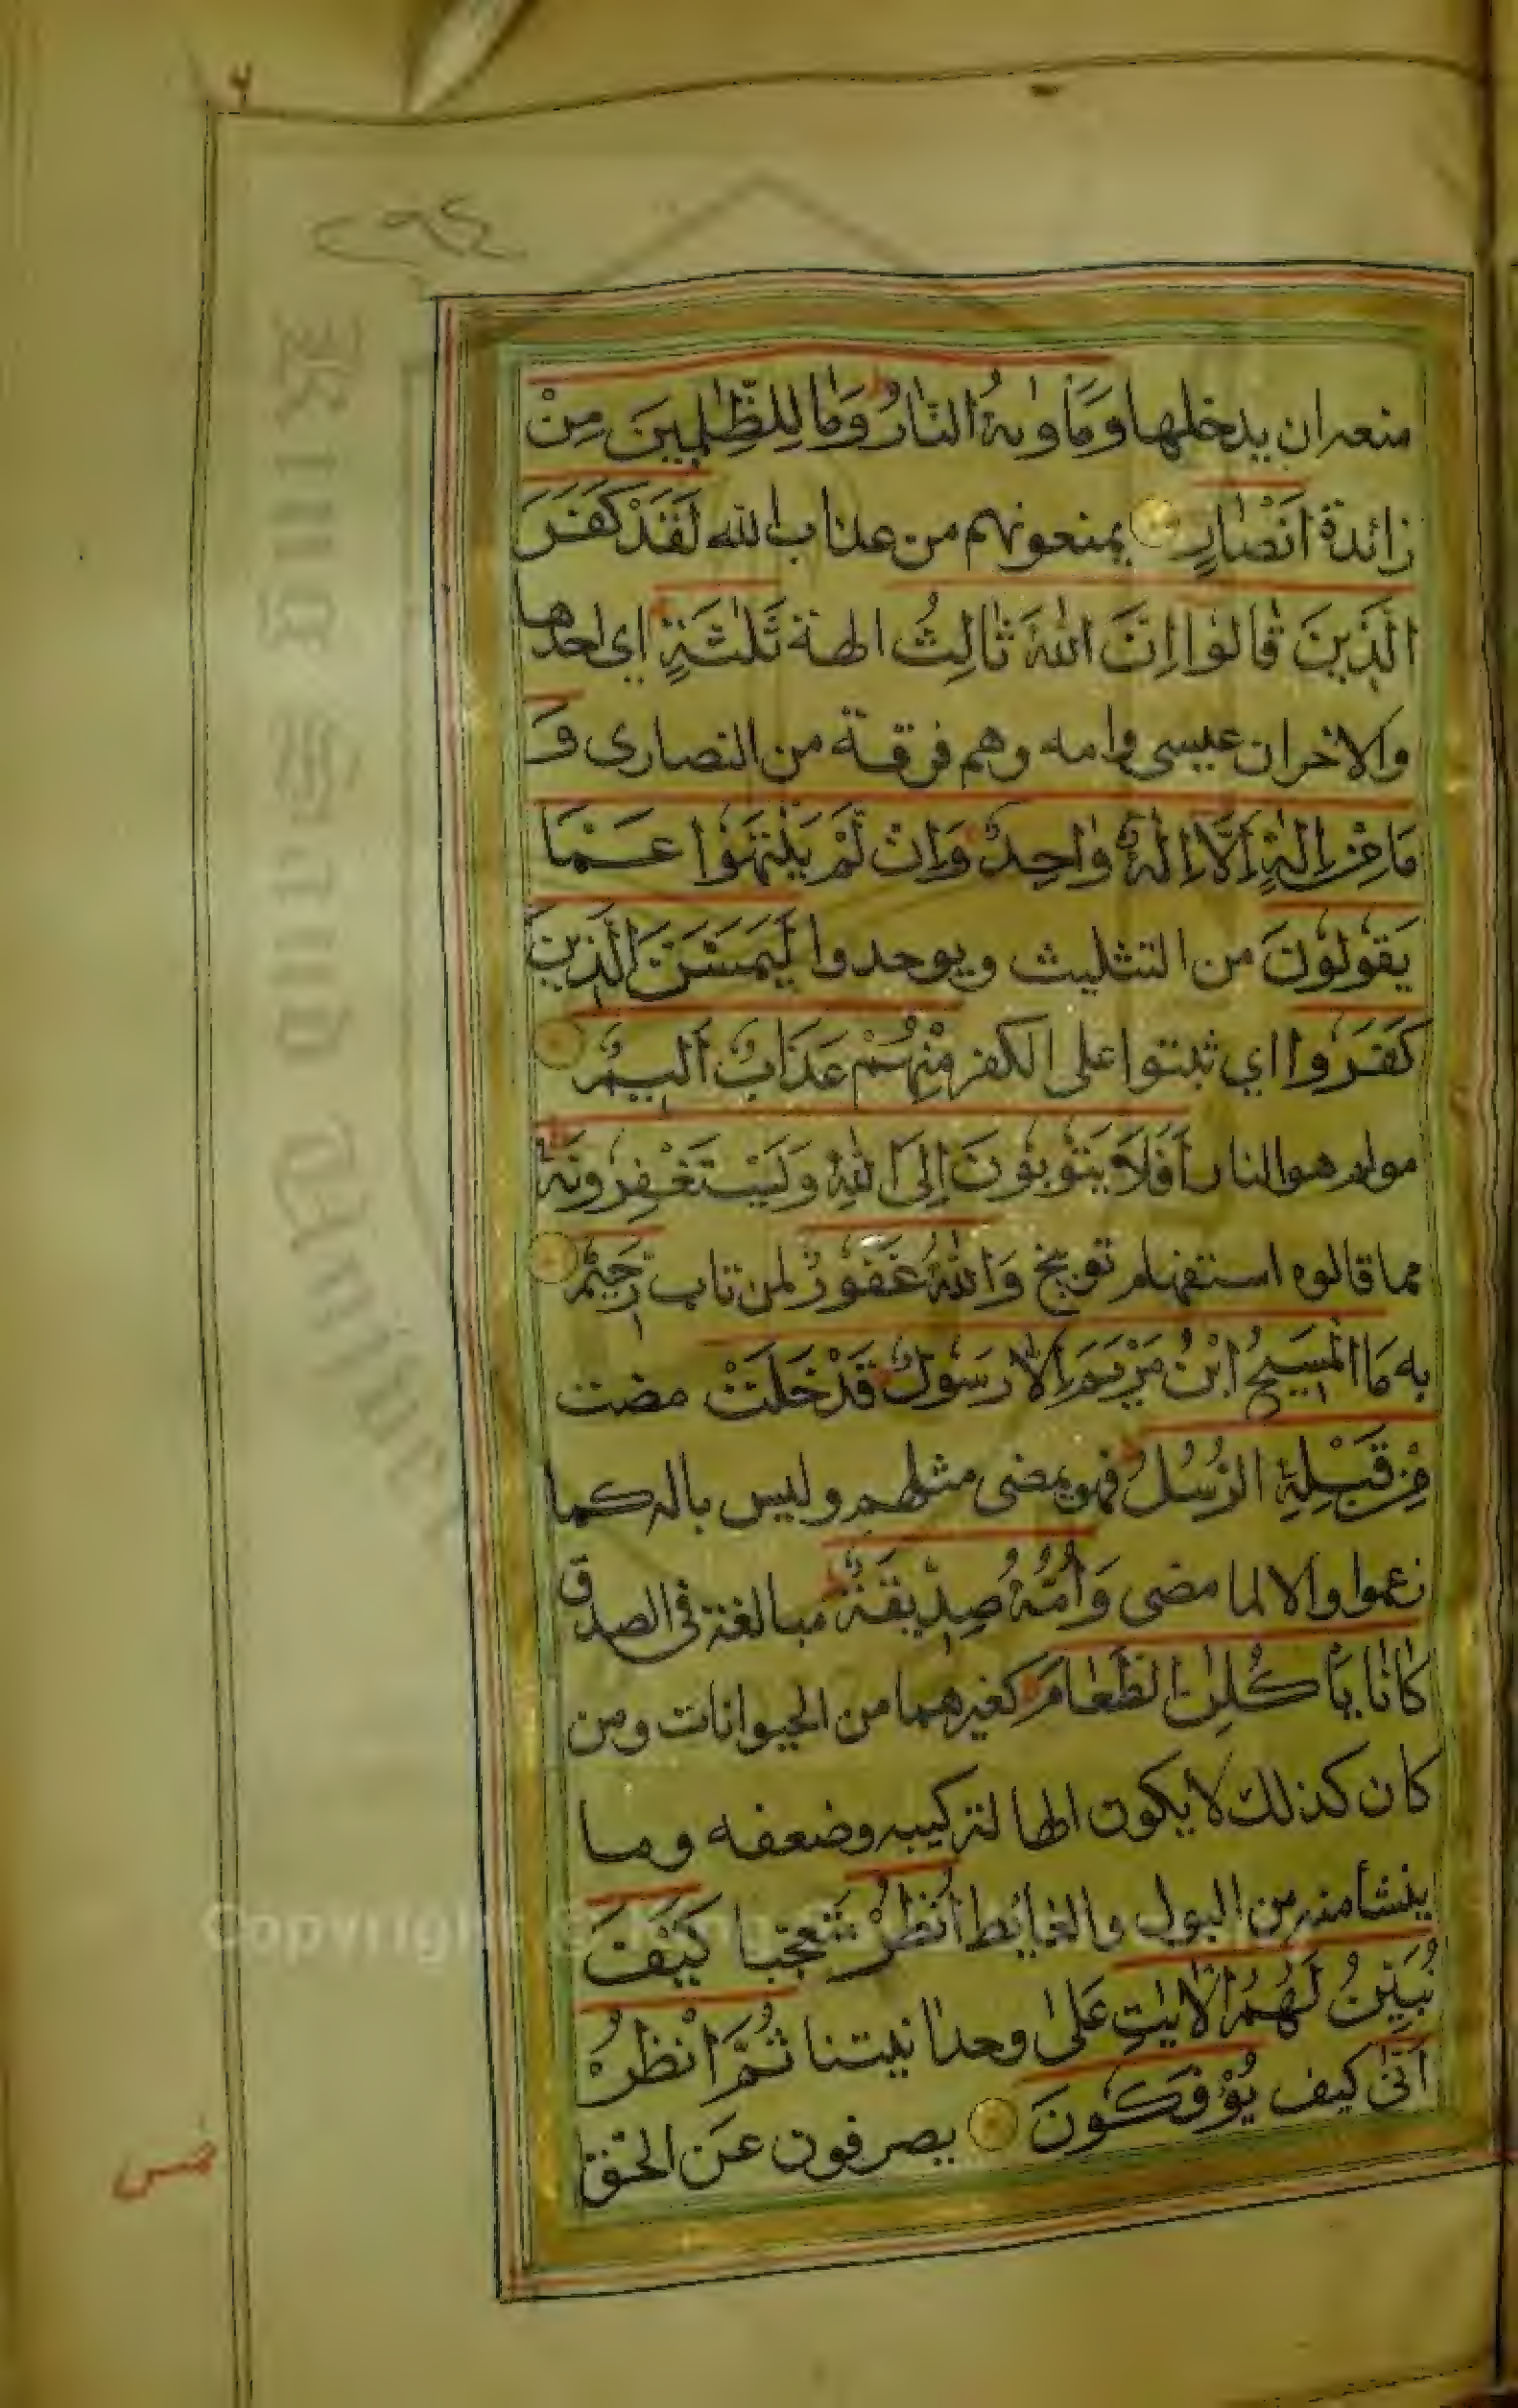 منعه ان يدخلها وَمَأْوٰىهُ النَّارُ وَمَا لِلظّٰلِمِينَ مِنْ
زائدة اَنْصَارٍ يمنعونهم من عذاب الله لَقَدْ كَفَرَ
الَّذِينَ قَالُوا اِنَّ اللّٰهَ ثَالِثُ الهة ثَلٰثَةٍ اي احدها
والاخران عيسى وامه وهم فرقة من النصارى وَ
مَا مِنْ اِلٰهٍ اِلَّا اِلٰهٌ وَاحِدٌ وَاِنْ لَمْ يَنْتَهُوا عَمَّا
يَقُولُونَ من التثليث ويوحدوا لَيَمَسَّنَّ الَّذِينَ
كَفَرُوا اي ثبتوا على الكفر مِنْهُمْ عَذَابٌ اَلِيمٌ
مولم هو النار اَفَلَا يَتُوبُونَ اِلَى اللّٰهِ وَيَسْتَغْفِرُونَهُ
مما قالوه استفهام توبيخ وَاللّٰهُ غَفُورٌ لمن تاب رَحِيمٌ
به مَا الْمَسِيحُ ابْنُ مَرْيَمَ اِلَّا رَسُولٌ قَدْ خَلَتْ مضت
مِنْ قَبْلِهِ الرُّسُلُ فهو يمضى مثلهم وليس باله كما
زعموا والا لما مضى وَاُمُّهُ صِدِّيقَةٌ مبالغة في الصدق
كَانَا يَأْكُلٰنِ الطَّعَامَ كغيرهما من الحيوانات ومن
كان كذلك لا يكون الها لتركيبه وضعفه وما
ينشأ منه من البول والغائط اُنْظُرْ متعجبا كَيْفَ
نُبَيِّنُ لَهُمُ الْاٰيٰتِ عَلىٰ وحدانيتنا ثُمَّ انْظُرْ
اَنّٰى كيف يُؤْفَكُونَ يصرفون عَن الحق
Copyright © King